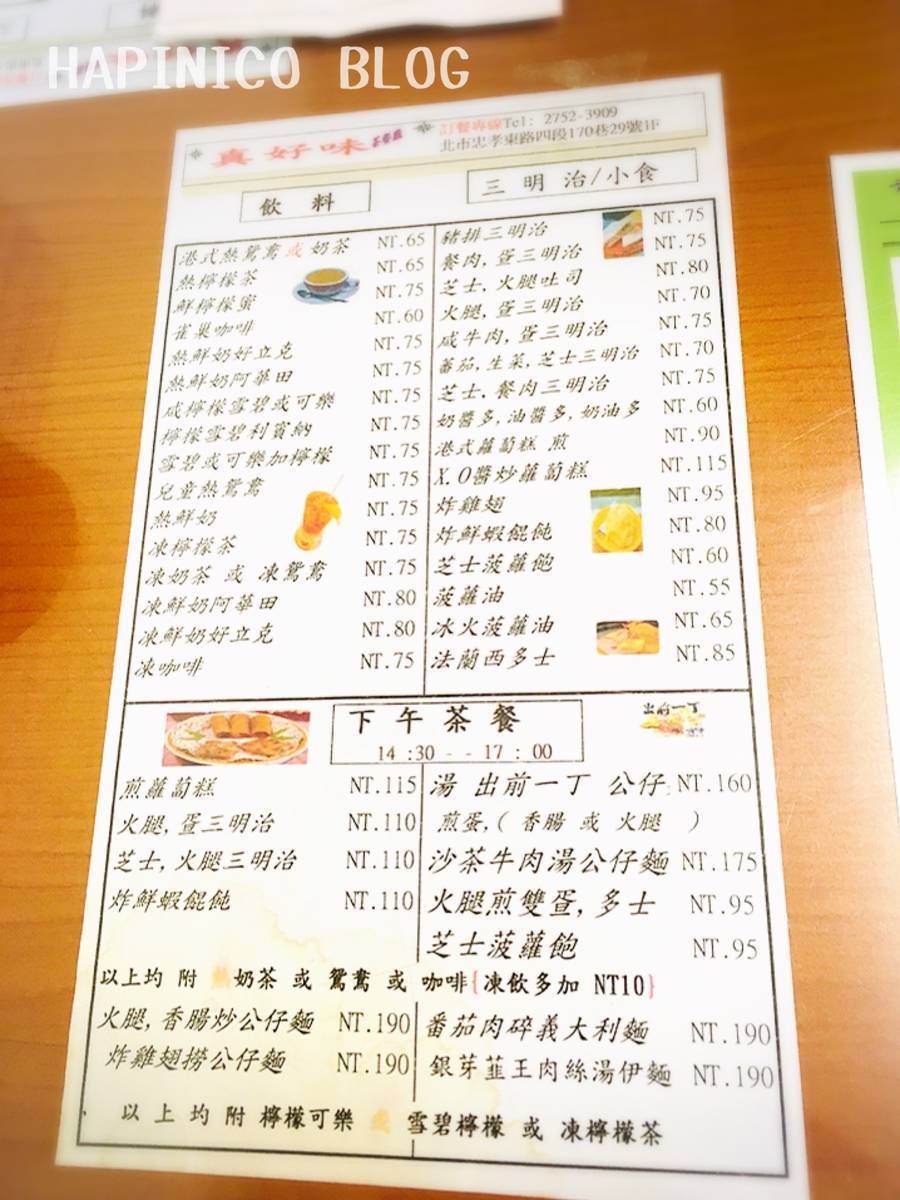 HAPINICO BLOG
真好味茶餐廳
訂餐專線Tel: 2752-3909
北市忠孝東路四段170巷29號1F
飲料
港式熱鴛鴦或奶茶 NT.65
熱檸檬茶 NT.65
鮮檸檬蜜 NT.75
雀巢咖啡 NT.60
熱鮮奶好立克 NT.75
熱鮮奶阿華田 NT.75
咸檸檬雪碧或可樂 NT.75
檸檬雪碧利賓納 NT.75
雪碧或可樂加檸檬 NT.75
兒童熱鴛鴦 NT.75
熱鮮奶 NT.75
凍檸檬茶 NT.75
凍奶茶 或 凍鴛鴦 NT.75
凍鮮奶阿華田 NT.80
凍鮮奶好立克 NT.80
凍咖啡 NT.75
三明治/小食
豬排三明治 NT.75
餐肉,蛋三明治 NT.75
芝士,火腿吐司 NT.80
火腿,蛋三明治 NT.70
咸牛肉,蛋三明治 NT.75
蕃茄,生菜,芝士三明治 NT.70
芝士,餐肉三明治 NT.75
奶醬多,油醬多,奶油多 NT.60
港式蘿蔔糕 煎 NT.90
X.O醬炒蘿蔔糕 NT.115
炸雞翅 NT.95
炸鮮蝦餛飩 NT.80
芝士菠蘿飽 NT.60
菠蘿油 NT.55
冰火菠蘿油 NT.65
法蘭西多士 NT.85
下午茶餐
14:30--17:00
出前一丁
煎蘿蔔糕 NT.115
火腿,蛋三明治 NT.110
芝士,火腿三明治 NT.110
炸鮮蝦餛飩 NT.110
湯 出前一丁 公仔 NT.160
煎蛋,( 香腸 或 火腿 )
沙茶牛肉湯公仔麵 NT.175
火腿煎雙蛋,多士 NT.95
芝士菠蘿飽 NT.95
以上均 附 熱奶茶 或 鴛鴦 或 咖啡{凍飲多加 NT10}
火腿,香腸炒公仔麵 NT.190
炸雞翅撈公仔麵 NT.190
蕃茄肉碎義大利麵 NT.190
銀芽韮王肉絲湯伊麵 NT.190
以上均附 檸檬可樂 或 雪碧檸檬 或 凍檸檬茶